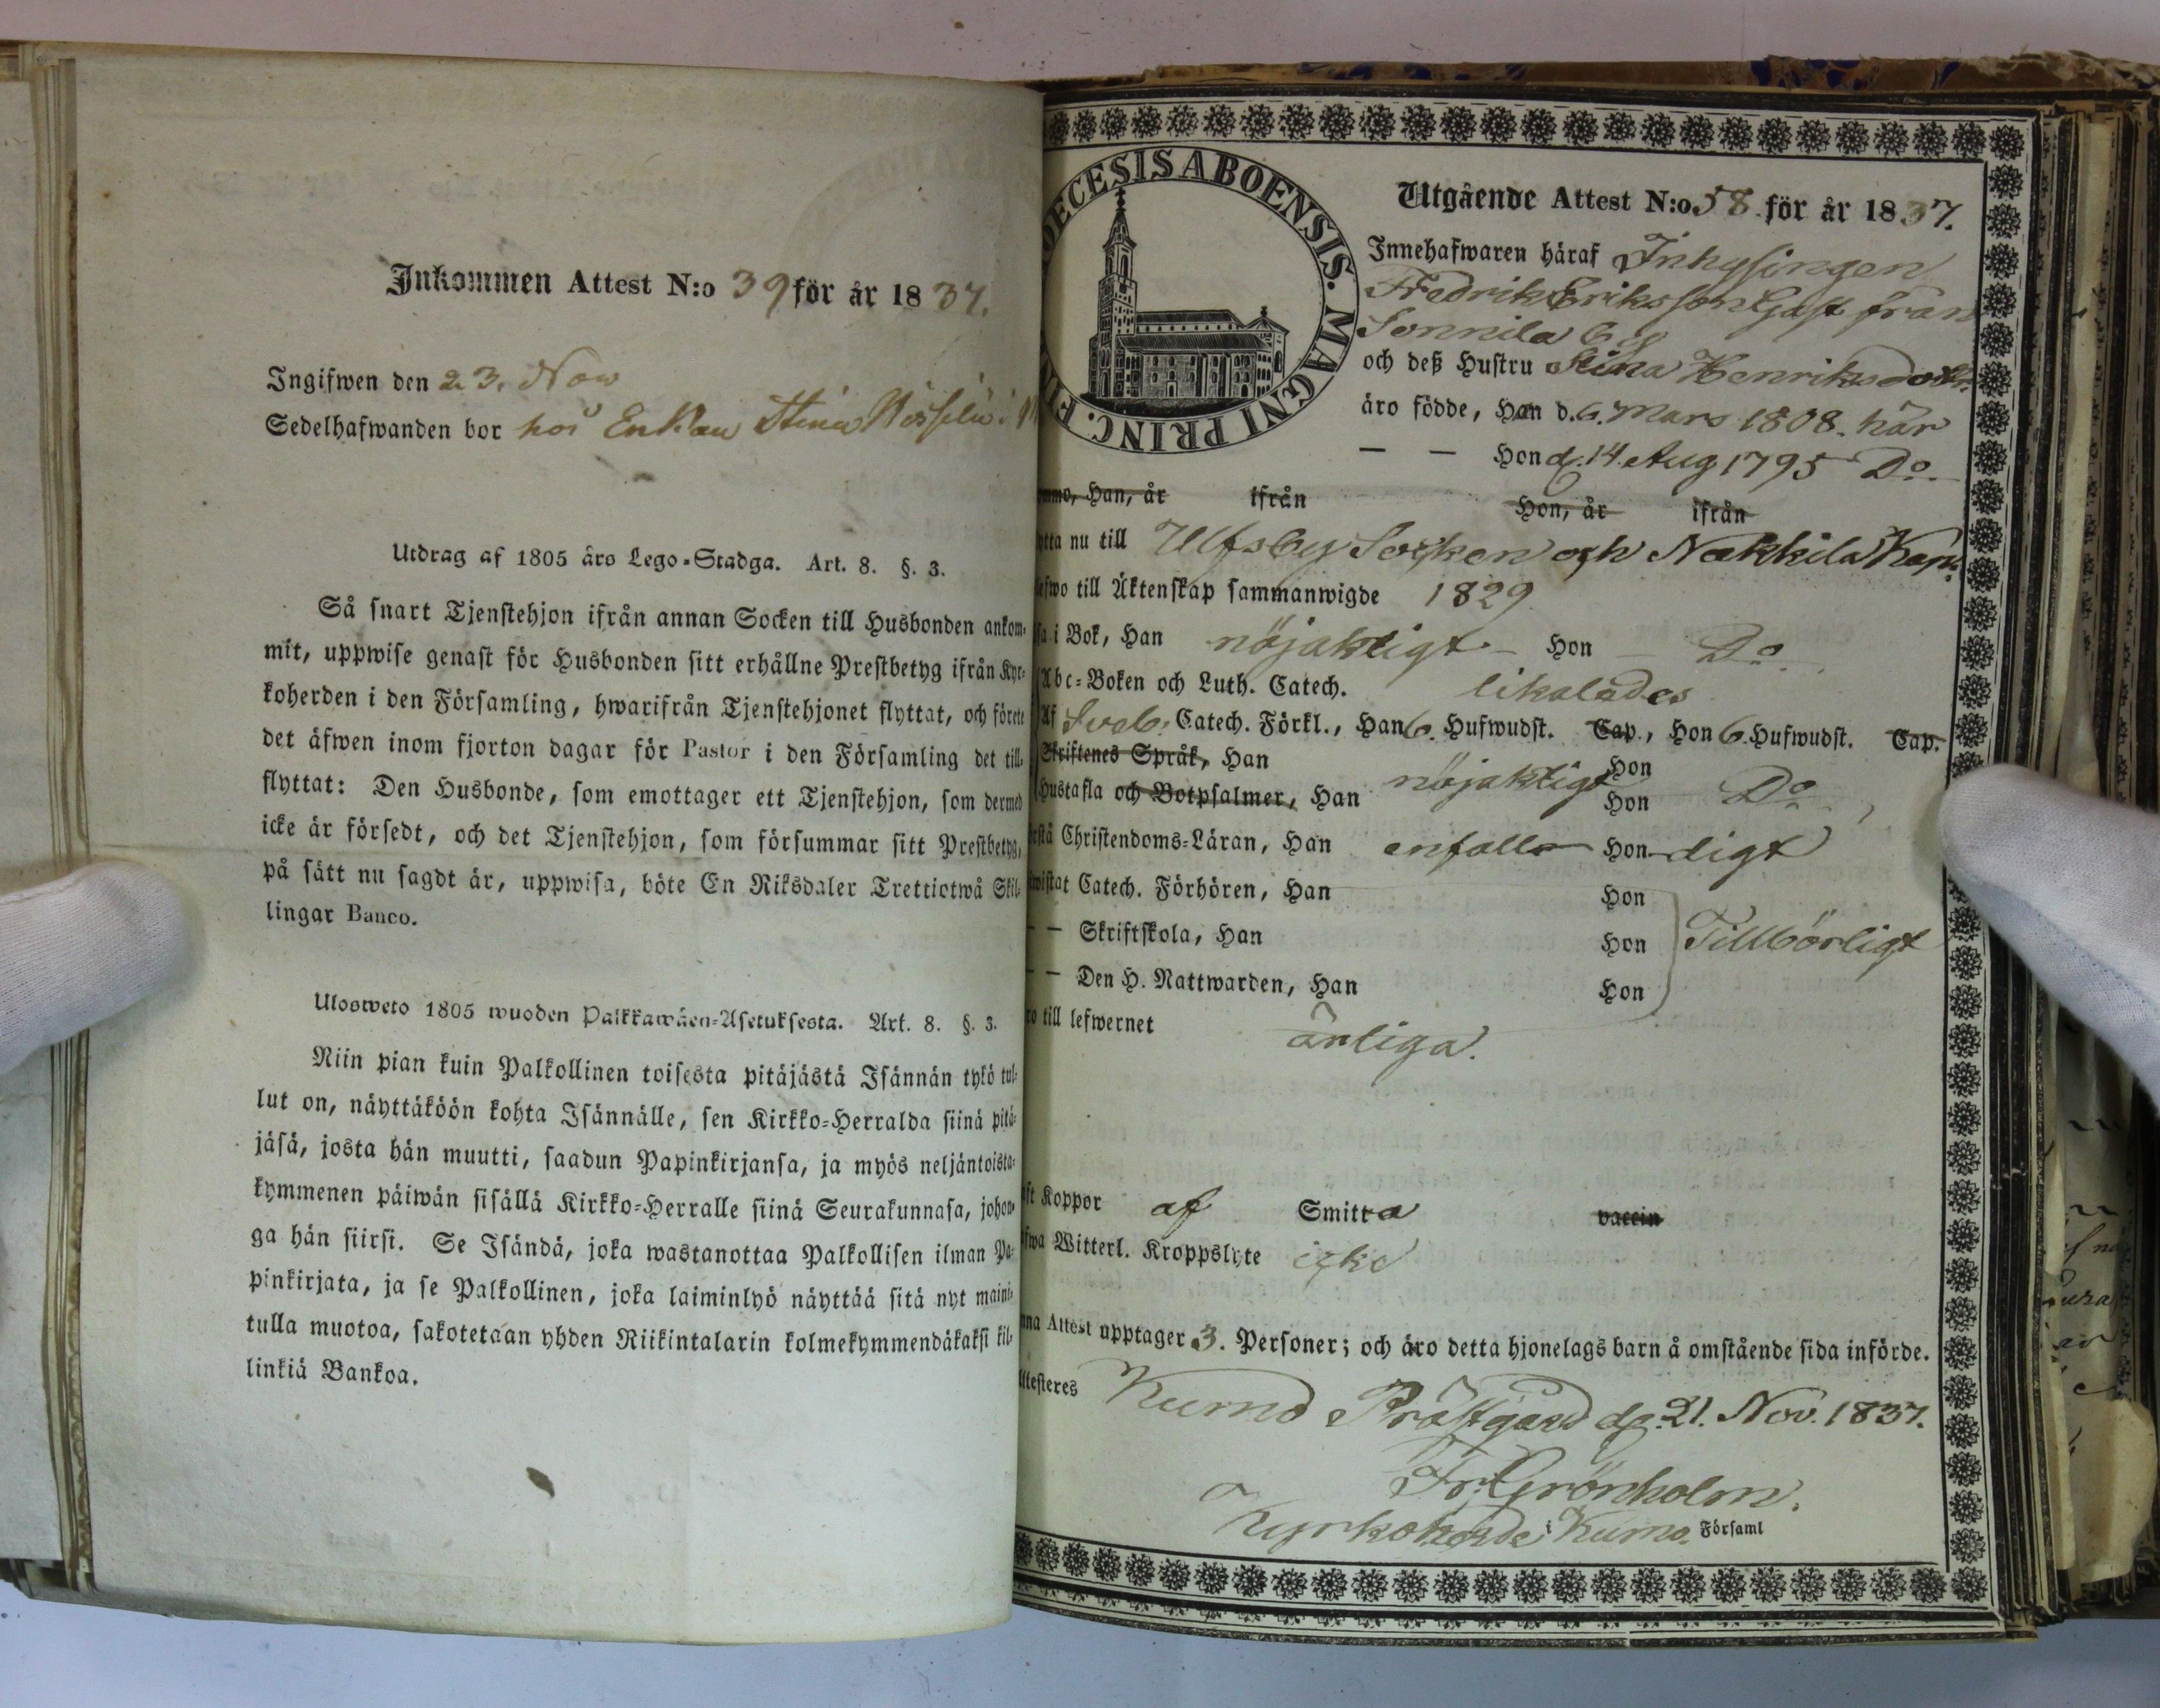 Inkommen Attest N:o 39 för år 1837.
Ingifwen den 23. Nov
Sedelhafwanden bor hos Enkan Stina
Utdrag af 1805 års Lego-Stadga. Art. 8. §. 3.
Så snart Tjenstehjon ifrån annan Socken till Husbonden ankom-
mit, uppwise genast för Husbonden sitt erhållne Prestbetyg ifrån Kyr-
koherden i den Församling, hwarifrån Tjenstehjonet flyttat, och förete
det äfwen inom fjorton dagar för Pastor i den Församling det till-
flyttat: Den Husbonde, som emottager ett Tjenstehjon, som dermed
icke är försedt, och det Tjenstehjon, som försummar sitt Prestbetyg,
på sätt nu sagdt är, uppwisa, böte En Riksdaler Trettiotwå Skil-
lingar Banco.
Ulosweto 1805 wuoden Palkkawäen-Asetuksesta. Art. 8. §. 3.
Niin pian kuin Palkollinen toisesta pitäjästä Isännän tykö tul-
lut on, näyttäköön kohta Isännälle, sen Kirkko-Herralda siinä pitä-
jäsä, josta hän muutti, saadun Papinkirjansa, ja myös neljäntoista-
kymmenen päiwän sisällä Kirkko-Herralle siinä Seurakunnasa, johon-
ga hän siirsi. Se Isändä, joka wastanottaa Palkollisen ilman Pa-
pinkirjata, ja se Palkollinen, joka laiminlyö näyttää sitä nyt maini-
tulla muotoa, sakotetaan yhden Riikintalarin kolmekymmendäkaksi kil-
linkiä Bankoa.
DECESIS ABOENSIS. MAGNI PRINC. FI
Utgående Attest N:o 58 för år 1837.
Innehafwaren häraf Inhysingen
Fredrik Eriksson Gast från
Sonnila by
och deß Hustru Stina Henriksdotr.
äro födde, Han d. 6. Mars 1808. här
— — Hon d. 14. Aug 1795 Do.
mo, Han, år ifrån Hon, år ifrån
tta nu till Ulfsby Socken och Nakkila Kap.
efwo till Äktenskap sammanwigde 1829
sa i Bok, Han nöjaktigt — Hon — Do
Abc-Boken och Luth. Catech. likaledes
Af Sveb. Catech. Förkl., Han 6. Hufwudst. Cap., Hon 6. Hufwudst. Cap.
Skriftenes Språk, Han Hon
Hustafla och Botpsalmer, Han nöjaktigt Hon Do
rstå Christendoms-Läran, Han enfall- Hon -digt
wistat Catech. Förhören, Han Hon
— — Skriftskola, Han Hon Tillbörligt
— — Den H. Nattwarden, Han Hon
ro till lefwernet ärliga.
ft Koppor af Smitta vaccin
fwa Witterl. Kroppslyte icke
nna Attest upptager 3. Personer; och äro detta hjonelags barn å omstående sida införde.
Attesteres Kumo Prästgård d. 21. Nov. 1837.
Fr. Grönholm.
Kyrkoherde i Kumo. Församl